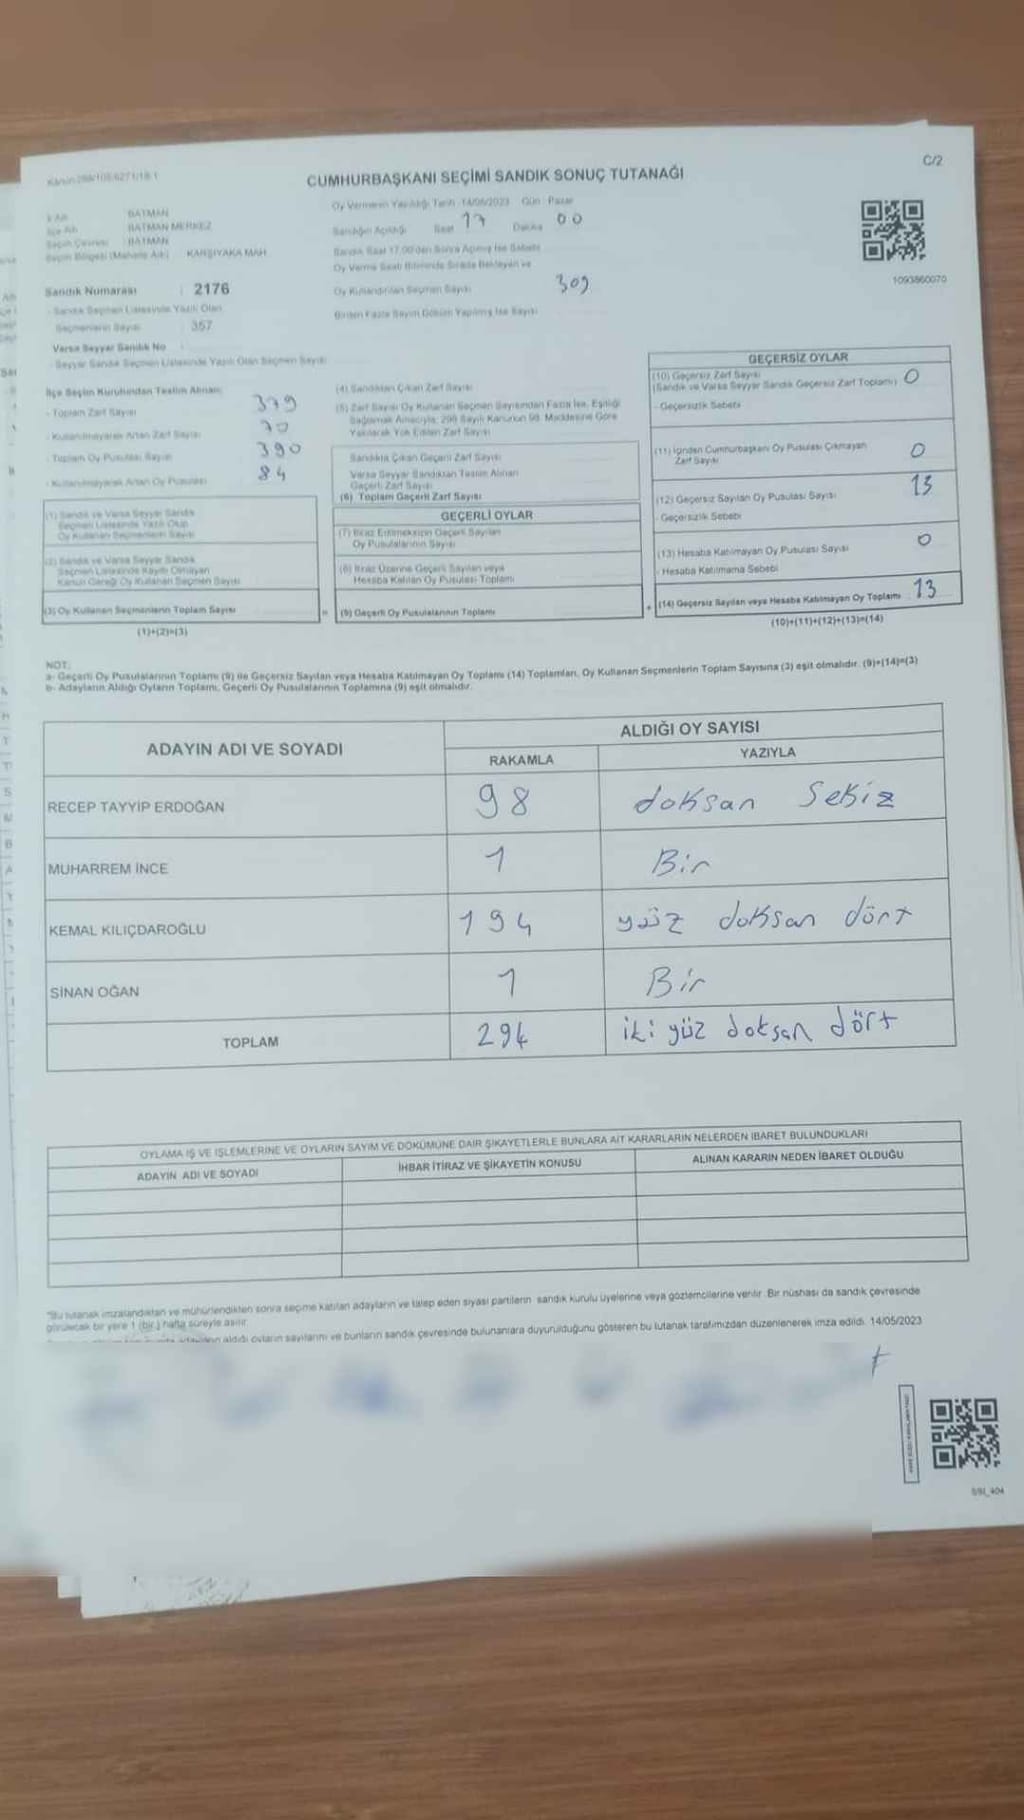 C/2
CUMHURBAŞKANI SEÇİMİ SANDIK SONUÇ TUTANAĞI
İl Adı BATMAN
İlçe Adı BATMAN MERKEZ
Seçim Çevresi BATMAN
Seçim Bölgesi (Mahalle Adı) KARŞIYAKA MAH.
Sandık Numarası : 2176
- Sandık Seçmen Listesinde Yazılı Olan
Seçmenlerin Sayısı : 357
Varsa Seyyar Sandık No
- Seyyar Sandık Seçmen Listesinde Yazılı Olan Seçmen Sayısı
Oy Vermenin Yapıldığı Tarih :14/05/2023 Gün : Pazar
Sandığın Açıldığı Saat 17 Dakika 00
Sandık Saat 17.00'den Sonra Açılmış İse Sebebi
Oy Verme Saati Bitiminde Sırada Bekleyen ve
Oy Kullandırılan Seçmen Sayısı 309
Birden Fazla Sayım Döküm Yapılmış İse Sayısı
1093860070
İlçe Seçim Kurulundan Teslim Alınan:
- Toplam Zarf Sayısı 379
- Kullanılmayarak Artan Zarf Sayısı 70
- Toplam Oy Pusulası Sayısı 390
- Kullanılmayarak Artan Oy Pusulası 84
(1) Sandık ve Varsa Seyyar Sandık
Seçmen Listesinde Yazılı Olup
Oy Kullanan Seçmenlerin Sayısı
(2) Sandık ve Varsa Seyyar Sandık
Seçmen Listesinde Kayıtlı Olmayan
Kanun Gereği Oy Kullanan Seçmen Sayısı
(3) Oy Kullanan Seçmenlerin Toplam Sayısı
(1)+(2)=(3)
(4) Sandıktan Çıkan Zarf Sayısı
(5) Zarf Sayısı Oy Kullanan Seçmen Sayısından Fazla İse, Eşitliği
Sağlamak Amacıyla, 298 Sayılı Kanunun 98. Maddesine Göre
Yakılarak Yok Edilen Zarf Sayısı
Sandıkta Çıkan Geçerli Zarf Sayısı
Varsa Seyyar Sandıktan Teslim Alınan
Geçerli Zarf Sayısı
(6) Toplam Geçerli Zarf Sayısı
GEÇERLİ OYLAR
(7) İtiraz Edilmeksizin Geçerli Sayılan
Oy Pusulalarının Sayısı
(8) İtiraz Üzerine Geçerli Sayılan veya
Hesaba Katılan Oy Pusulası Toplamı
= (9) Geçerli Oy Pusulalarının Toplamı
GEÇERSİZ OYLAR
(10) Geçersiz Zarf Sayısı 0
(Sandık ve Varsa Seyyar Sandık Geçersiz Zarf Toplamı)
- Geçersizlik Sebebi
(11) İçinden Cumhurbaşkanı Oy Pusulası Çıkmayan 0
Zarf Sayısı
(12) Geçersiz Sayılan Oy Pusulası Sayısı 13
- Geçersizlik Sebebi
(13) Hesaba Katılmayan Oy Pusulası Sayısı 0
- Hesaba Katılmama Sebebi
+ (14) Geçersiz Sayılan veya Hesaba Katılmayan Oy Toplamı 13
(10)+(11)+(12)+(13)=(14)
NOT:
a- Geçerli Oy Pusulalarının Toplamı (9) ile Geçersiz Sayılan veya Hesaba Katılmayan Oy Toplamı (14) Toplamları, Oy Kullanan Seçmenlerin Toplam Sayısına (3) eşit olmalıdır. (9)+(14)=(3)
b- Adayların Aldığı Oyların Toplamı, Geçerli Oy Pusulalarının Toplamına (9) eşit olmalıdır.
ADAYIN ADI VE SOYADI ALDIĞI OY SAYISI
RAKAMLA YAZIYLA
RECEP TAYYİP ERDOĞAN 98 doksan sekiz
MUHARREM İNCE 1 Bir
KEMAL KILIÇDAROĞLU 194 yüz doksan dört
SİNAN OĞAN 1 Bir
TOPLAM 294 iki yüz doksan dört
OYLAMA İŞ VE İŞLEMLERİNE VE OYLARIN SAYIM VE DÖKÜMÜNE DAİR ŞİKAYETLERLE BUNLARA AİT KARARLARIN NELERDEN İBARET BULUNDUKLARI
ADAYIN ADI VE SOYADI İHBAR İTİRAZ VE ŞİKAYETİN KONUSU ALINAN KARARIN NEDEN İBARET OLDUĞU
*Bu tutanak imzalandıktan ve mühürlendikten sonra seçime katılan adayların ve talep eden siyasi partilerin sandık kurulu üyelerine veya gözlemcilerine verilir. Bir nüshası da sandık çevresinde
görülecek bir yere 1 (bir) hafta süreyle asılır.
adayların aldığı oyların sayılarını ve bunların sandık çevresinde bulunanlara duyurulduğunu gösteren bu tutanak tarafımızdan düzenlenerek imza edildi. 14/05/2023